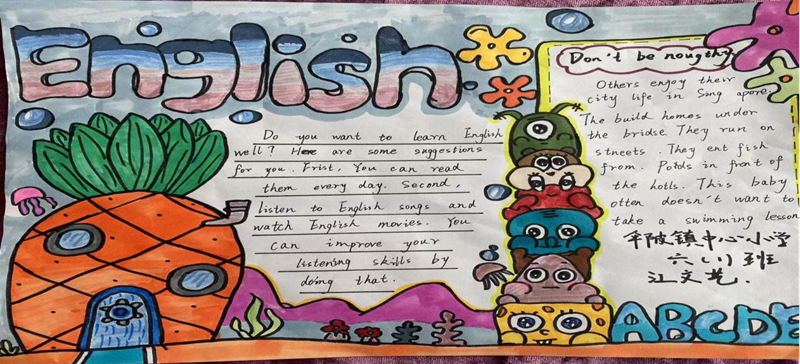 English
Do you want to learn English
well? Here are some suggestions
for you. Frist, You can read
them every day. Second,
listen to English songs and
watch English movies. You
can improve your
listening skills by
doing that.
Don't be noughty
Others enjoy their
city life in Sing apore.
The build homes under
the bridse They run on
stneets. They ent fish
from. Poids in front of
the hotls. This baby
otten doesn't want to
take a swimming lesson
中心小学
六(1)班
江文
ABCDE